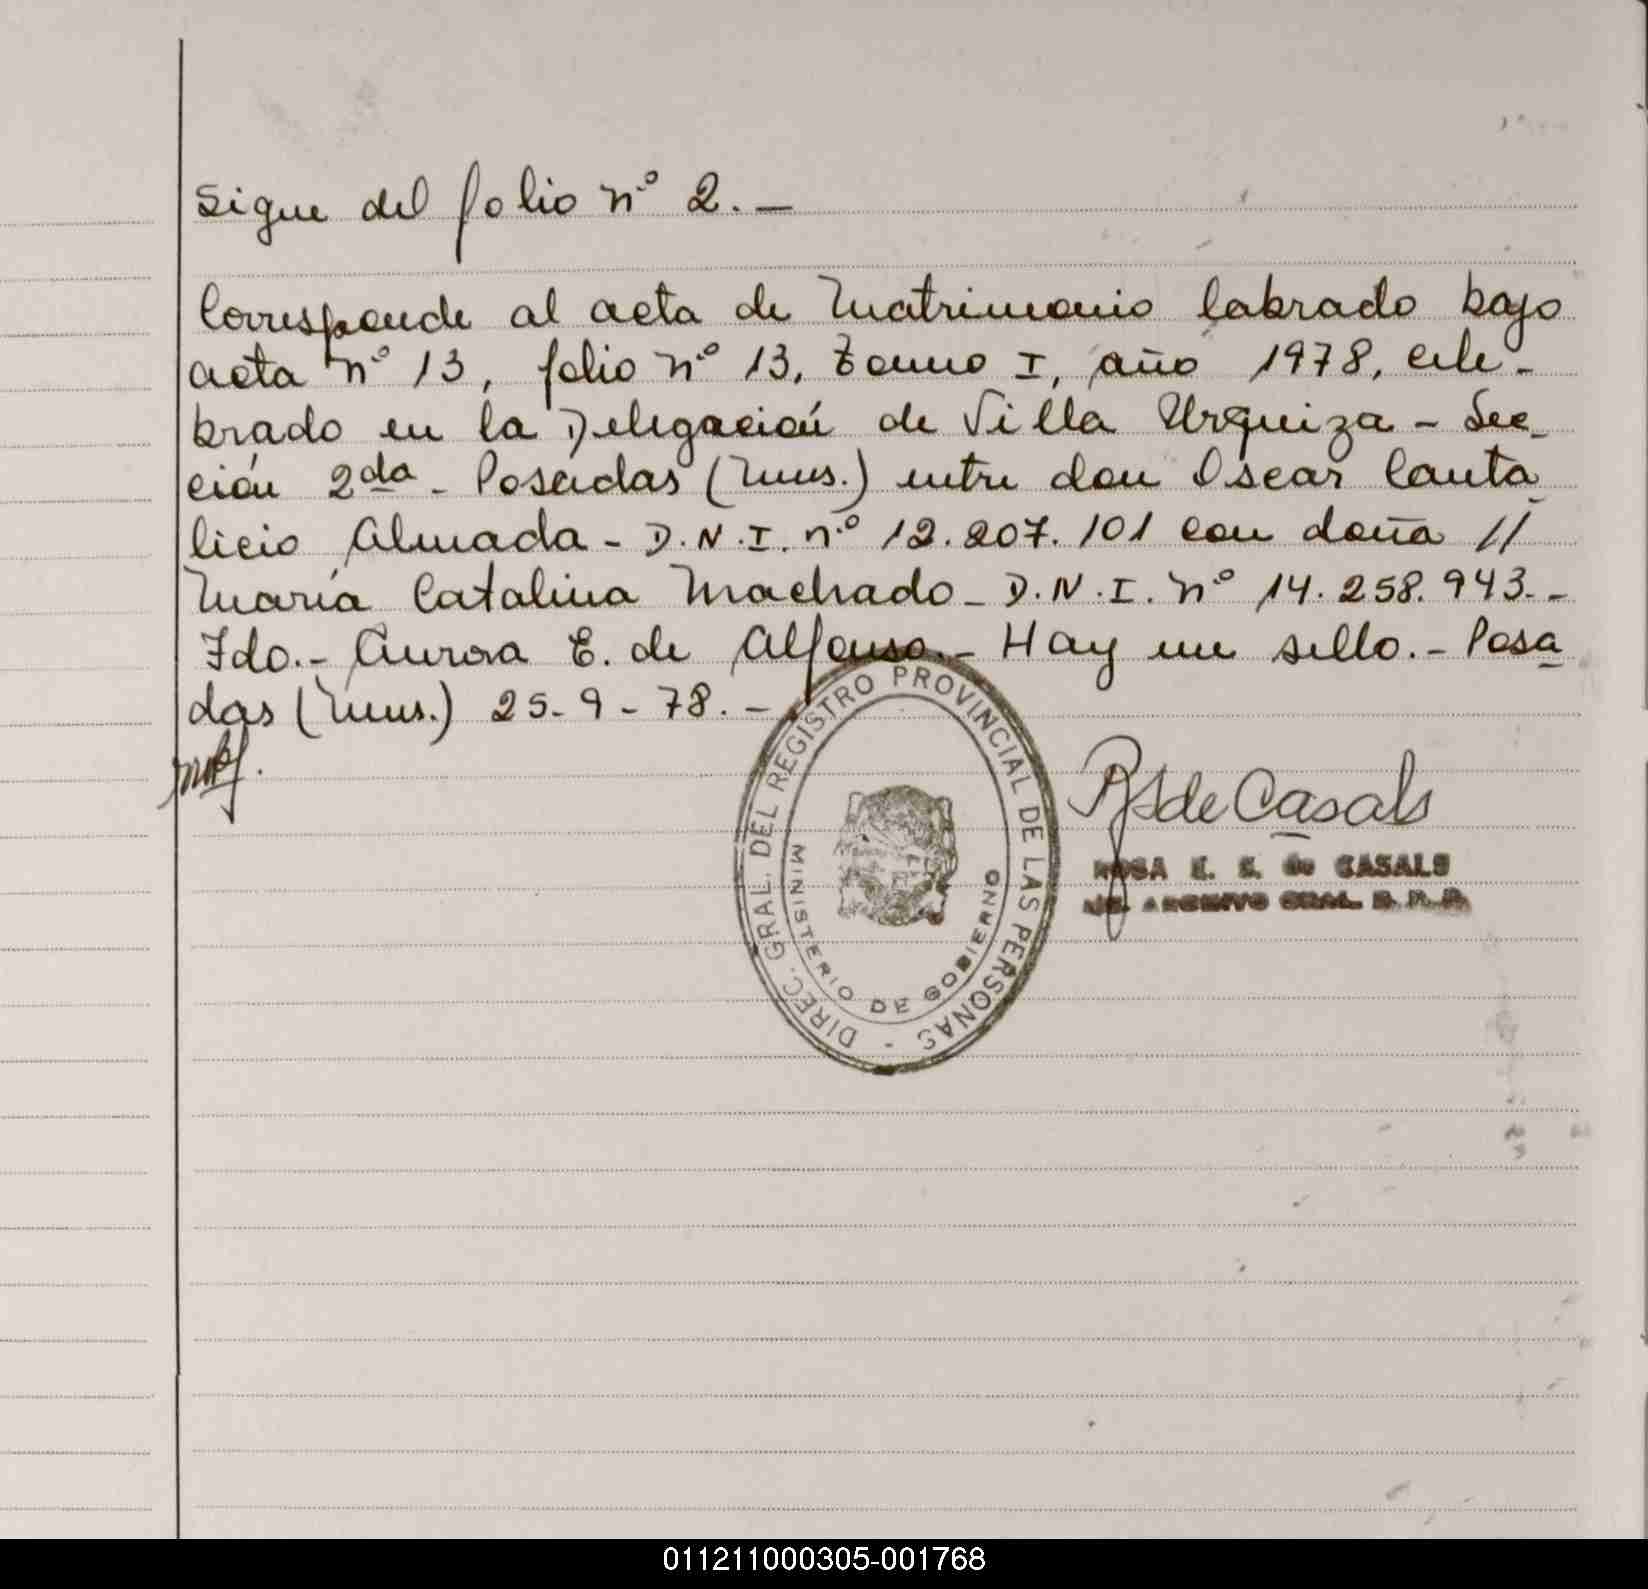 Sigue del folio nº 2.—
Corresponde al acta de Matrimonio labrado bajo
acta nº 13, folio nº 13, tomo I, año 1978, cele-
brado en la Delegación de Villa Urquiza - Sec-
ción 2da - Posadas (Mns.) entre don Oscar Canta
licio Almada - D.N.I. nº 12.207.101 con doña //
María Catalina Machado - D.N.I. nº 14.258.943.-
Fdo.- Aurora E. de Alfonso.- Hay un sello.- Posa
das (Mns.) 25-9-78.-
DIREC. GRAL. DEL REGISTRO PROVINCIAL DE LAS PERSONAS -
MINISTERIO DE GOBIERNO
de Casals
ROSA E. S. de CASALS
ARCHIVO GRAL. R. P. P.
011211000305-001768